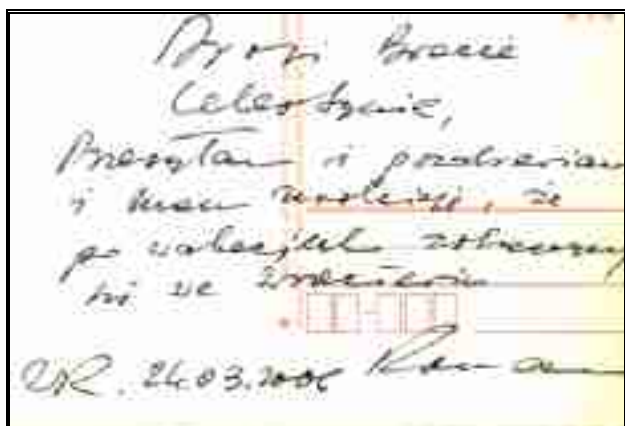 Drogi Bracie
Celestynie,
Przesyłam i pozdrawiam
i mam nadzieję, że
po wakacjach zobaczymy
się we
24.03.2006 Roman